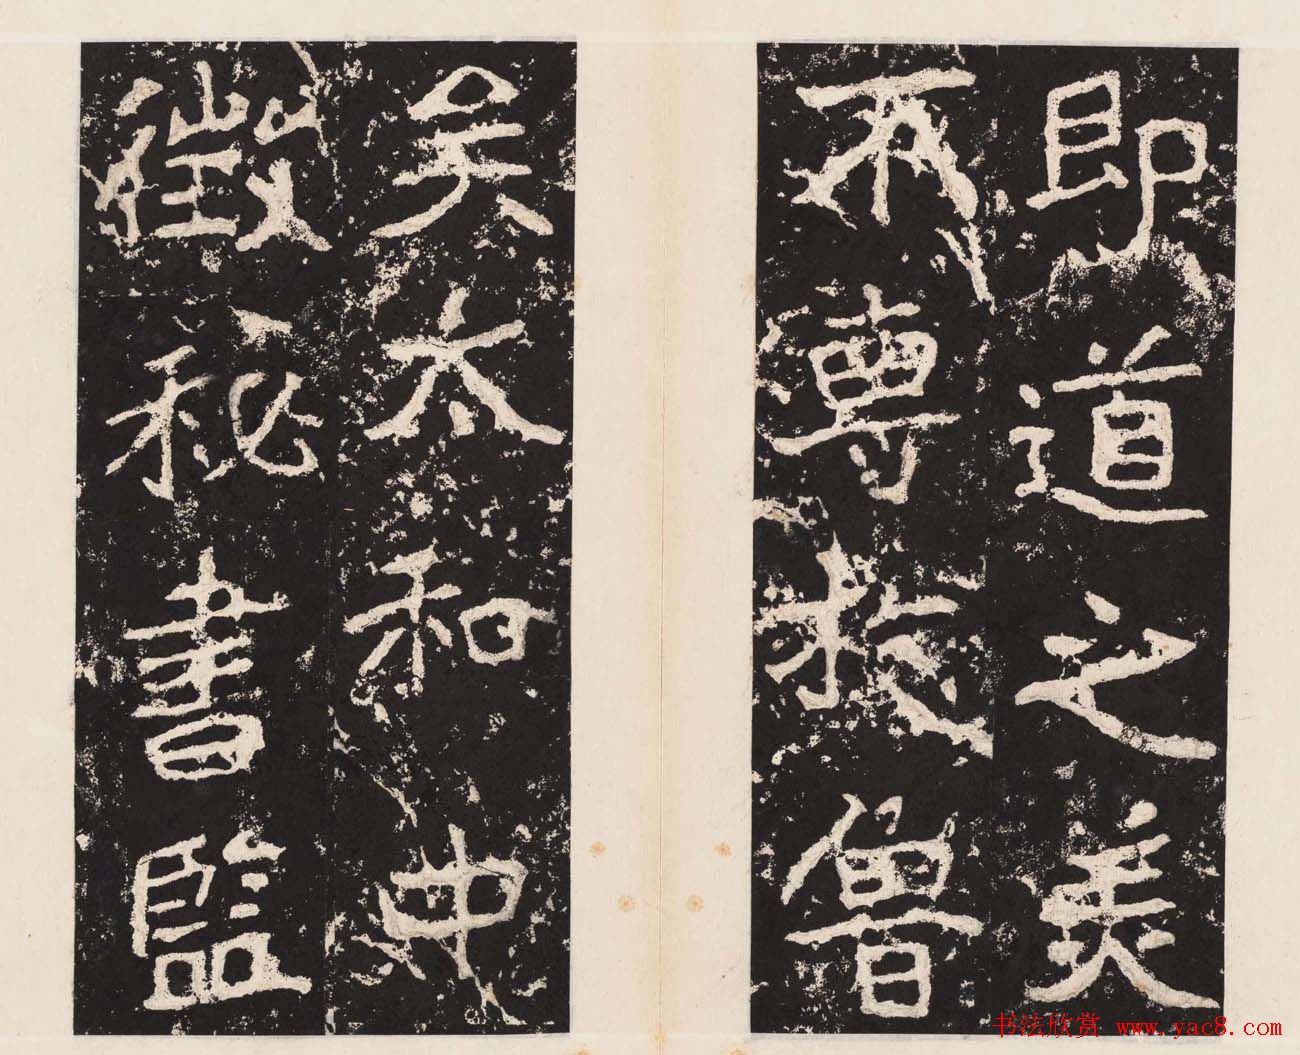 即道之美
不尊於魯
矣太和中
徵秘書監
书法欣赏 www.yac8.com